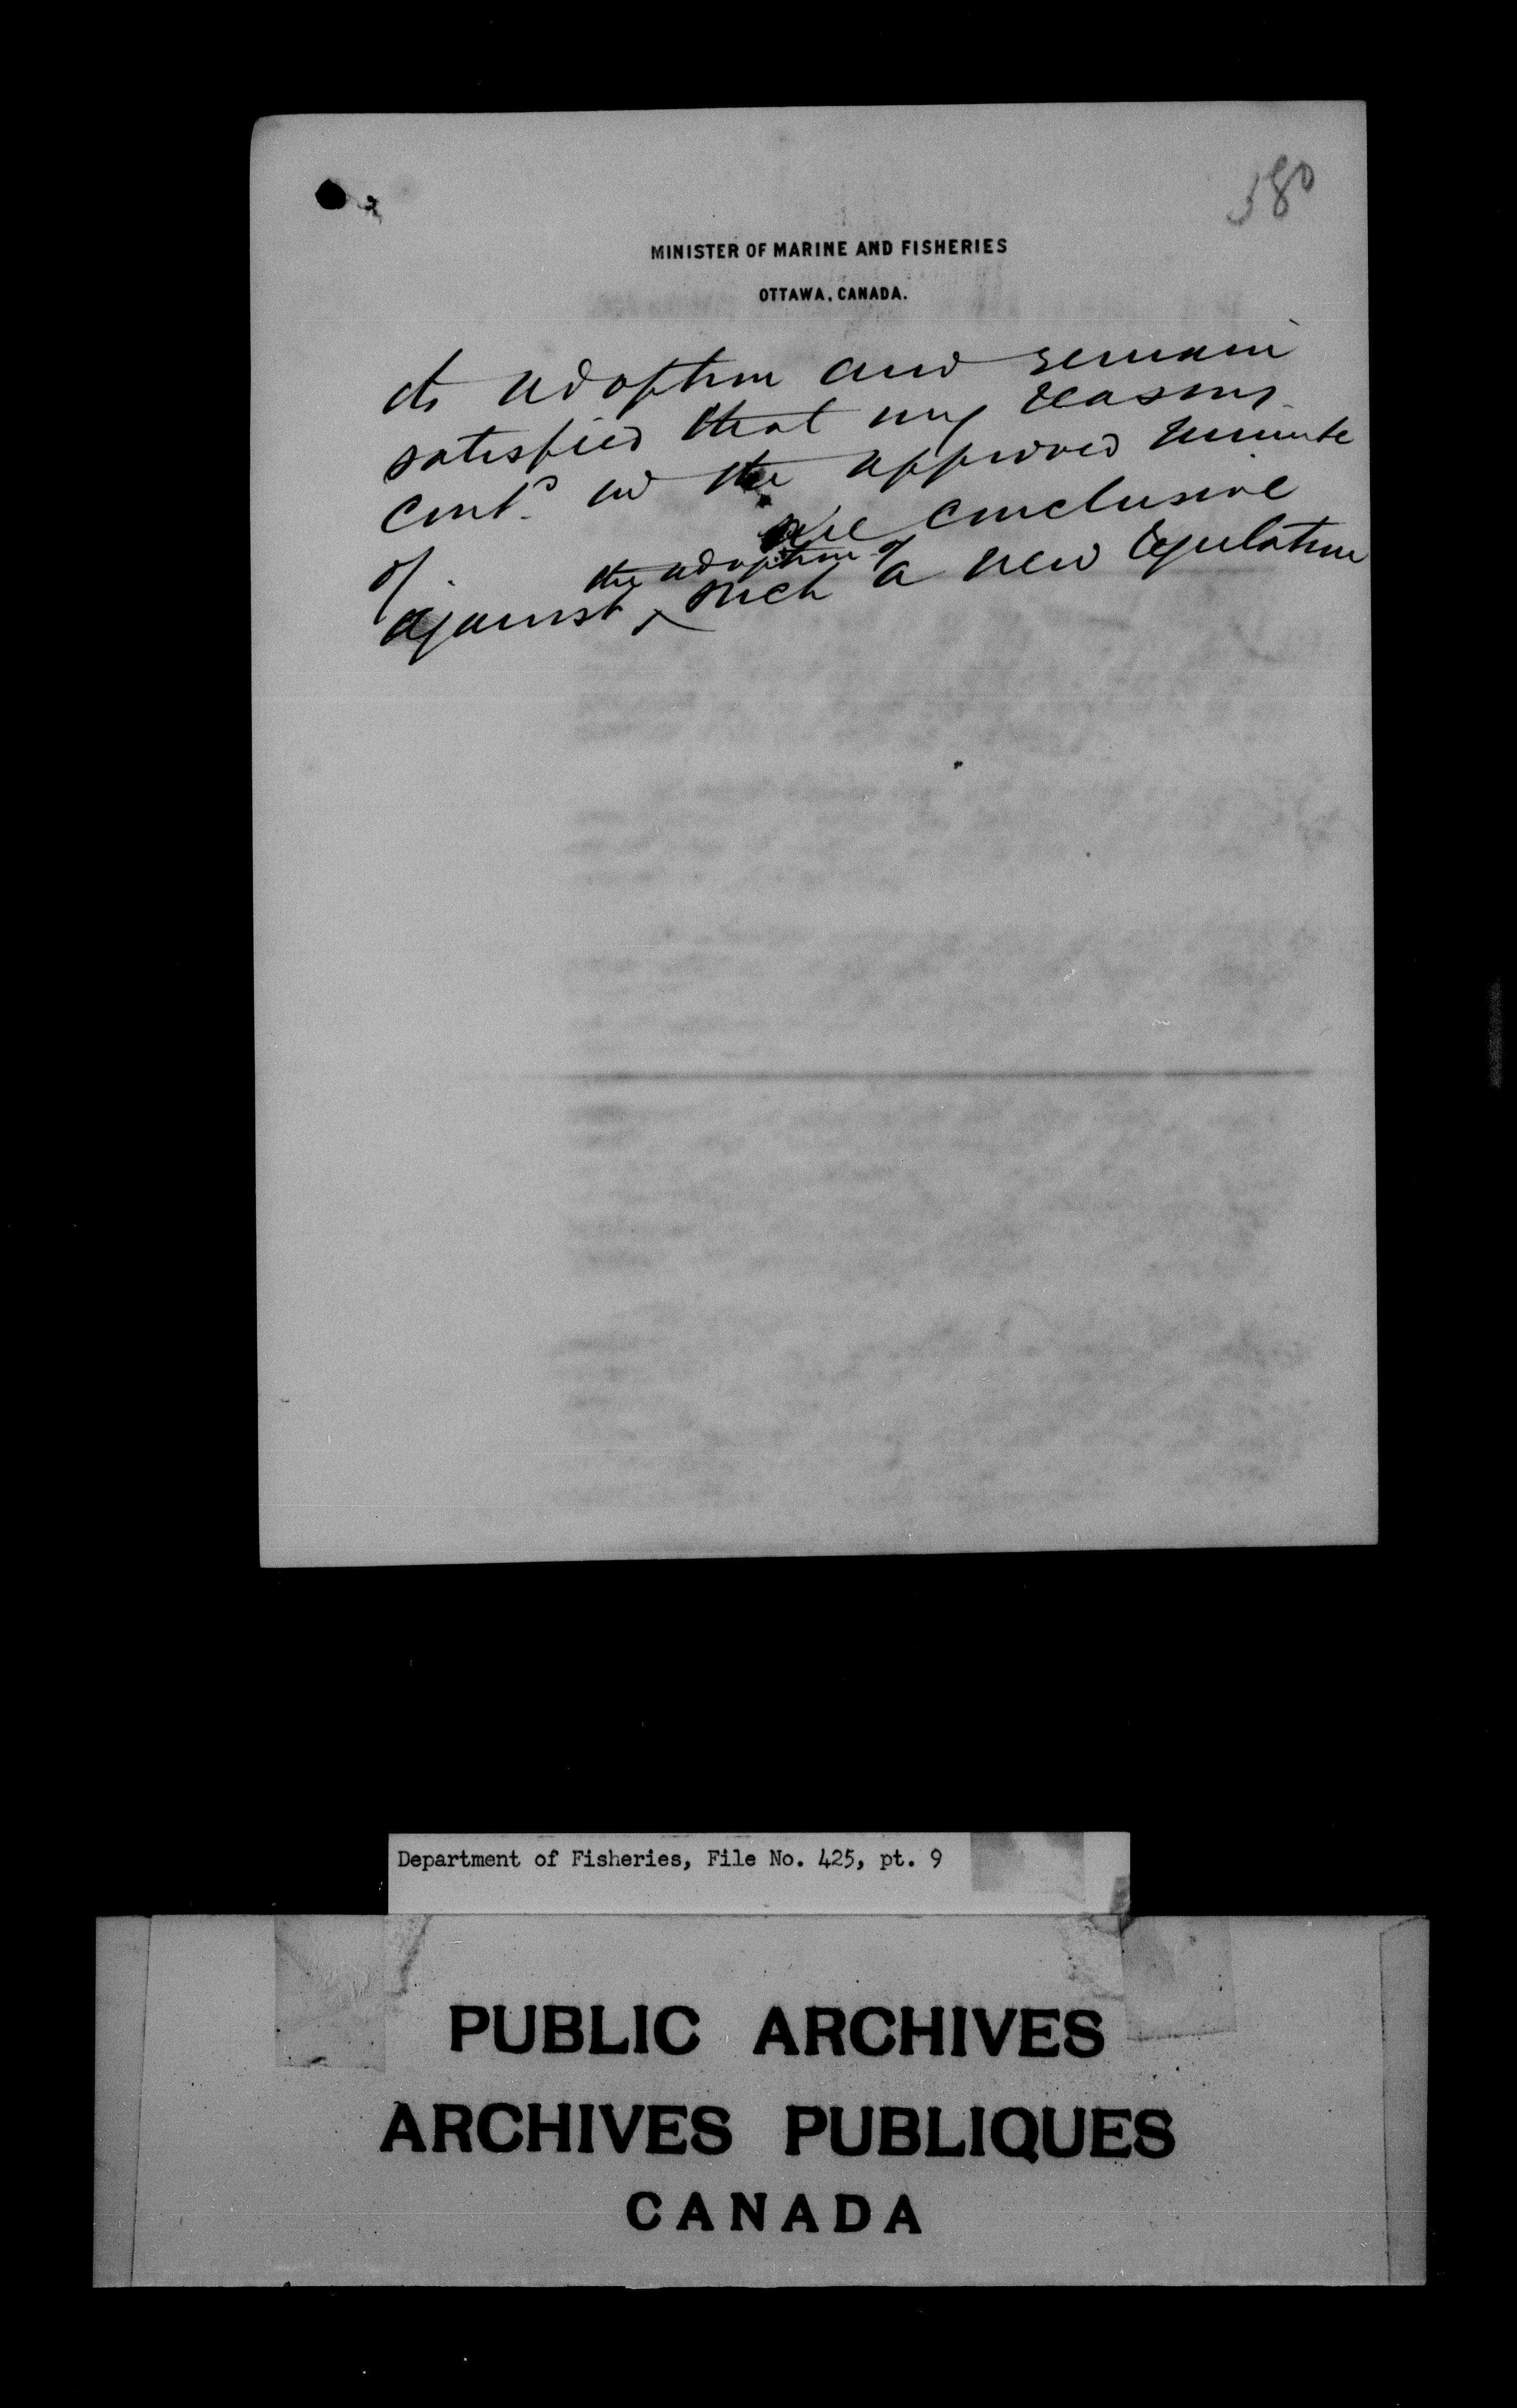 380
MINISTER OF MARINE AND FISHERIES
OTTAWA, CANADA.
its adoption and remain
satisfied that my reasons
contd in the approved minute
of are conclusive
the adoption of
against such a new regulation
Department of Fisheries, File No. 425, pt. 9
PUBLIC ARCHIVES
ARCHIVES PUBLIQUES
CANADA